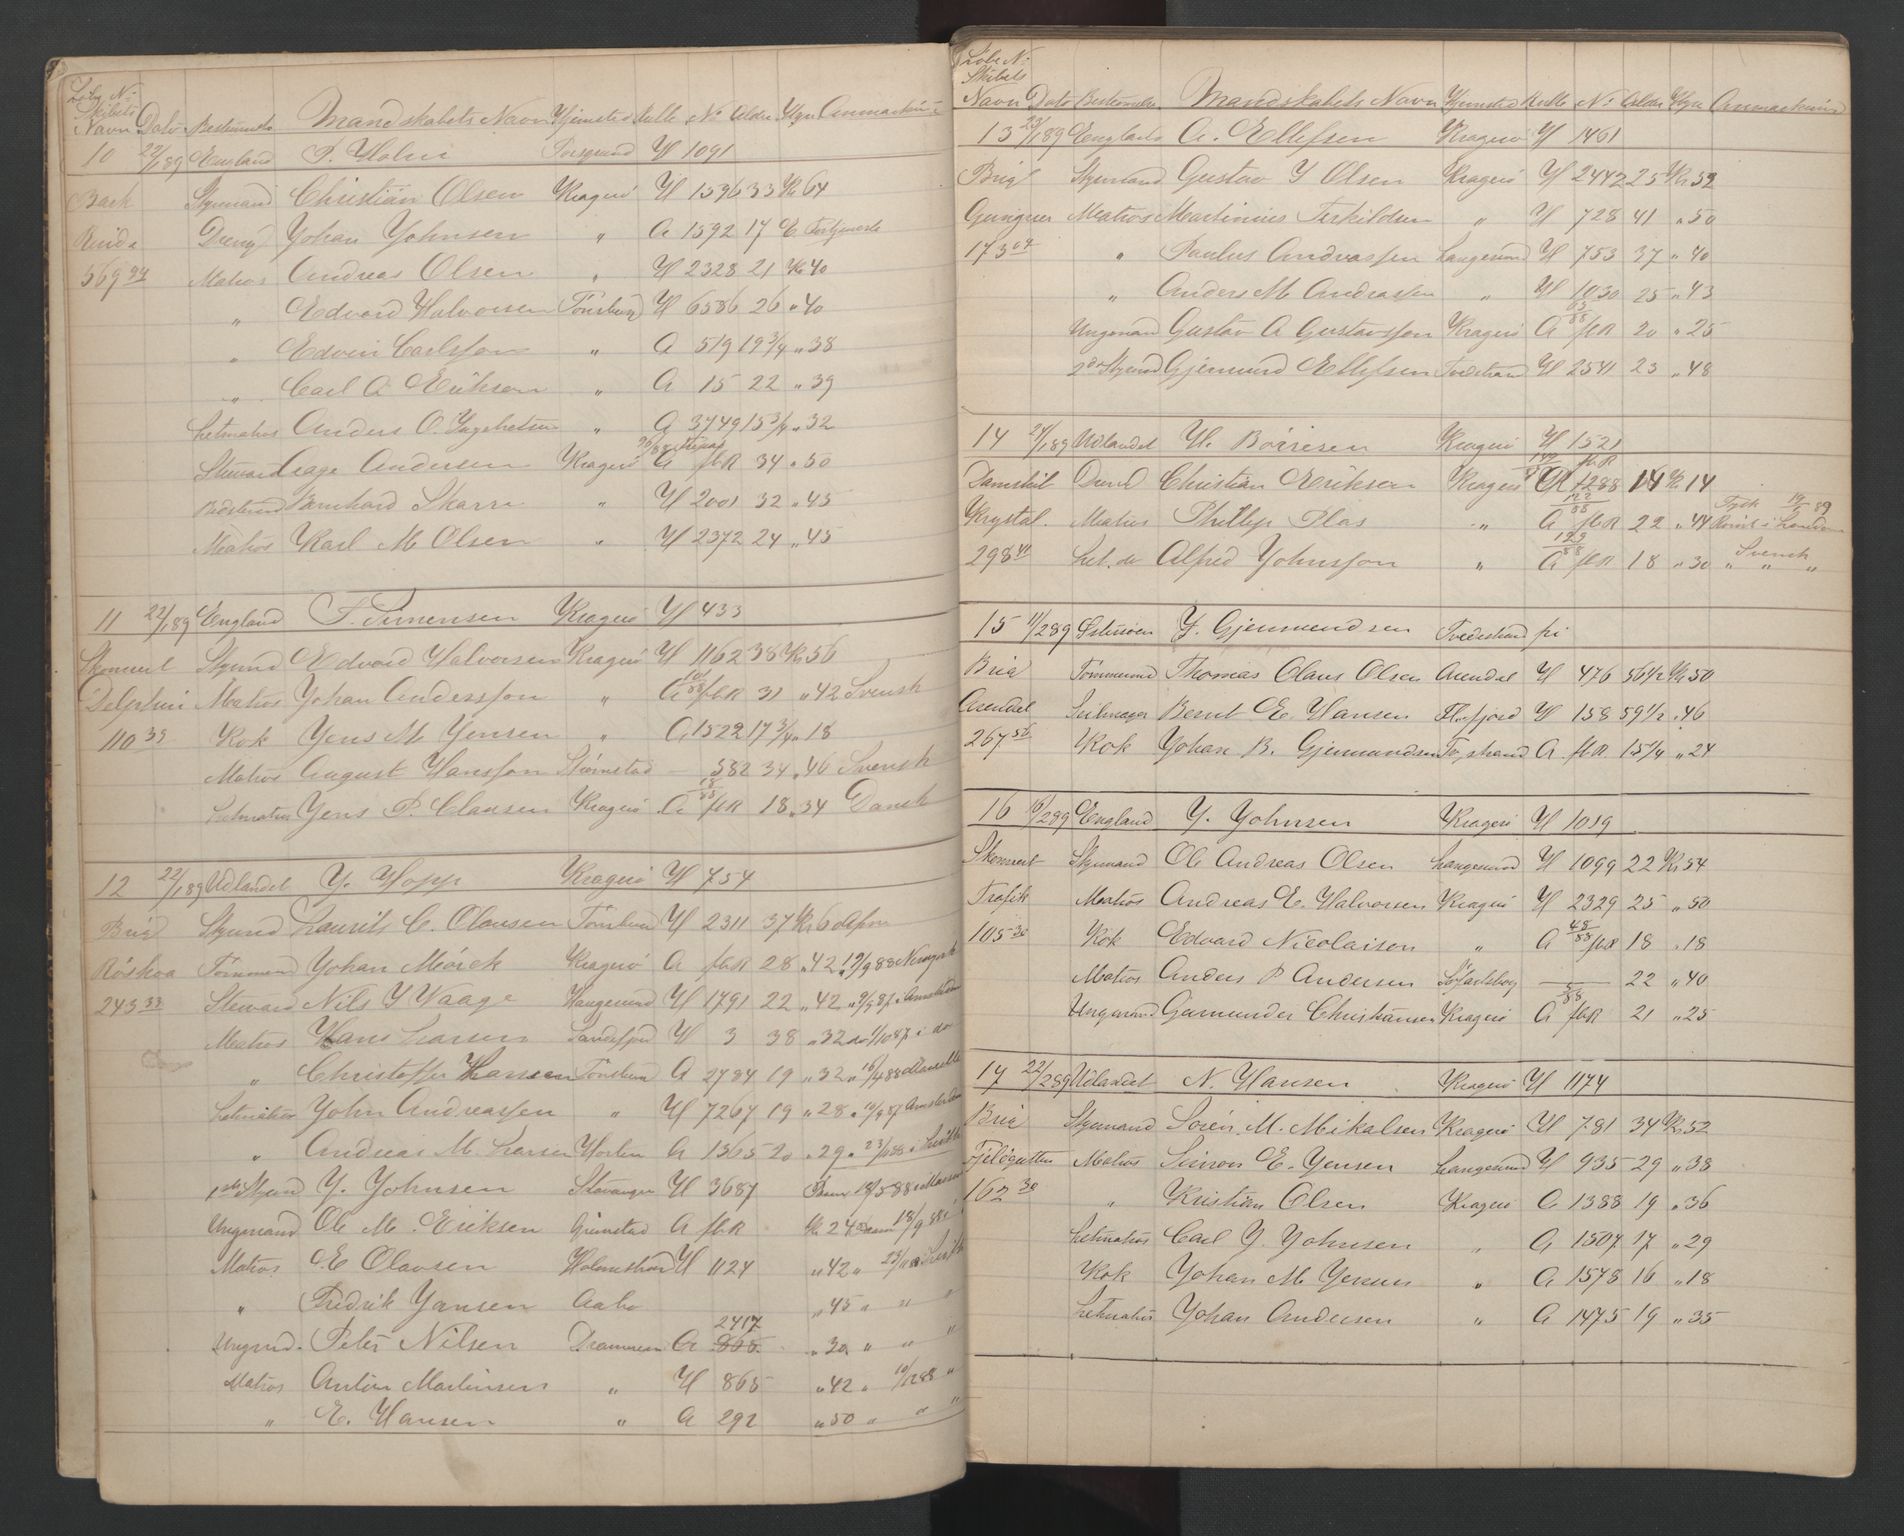 Löbe N:
Skibets
Navn Dato Bestemmelse Mandskabets Navn Hjemsted Rulle No Alder Hyre Anmærkning
10 22/1 89 England P. Holm Porsgrund H 1091
Bark Styrmand Christian Olsen Kragerö H 1536 33 Kr 64
Dreng Johan Johnsen " A 1592 17 E. Fortjeneste
569 94 Matros Andreas Olsen " H 2328 21 Kr 40
" Edvard Halvorsen Tönsberg H 6586 26 " 40
" Edvin Carlsson " A 519 19 3/4 " 38
" Carl A Erikson " A 15 22 " 39
Letmatros Anders O. " A 3749 15 3/4 " 32
Steward Aage Andersen Kragerö A fbR 34 " 50
Bernhard Skarre " H 2001 32 " 45
Matros Karl M Olsen " H 2372 24 " 45
11 22/1 89 England Kragerö H 433
Skonnert Styrmd Edvard Halvorsen Kragerö H 1162 38 Kr 56
Delphin Matros Johan Anderssson " A fbR 31 " 42 Svensk
110 35 Kok Jens M Jensen " A 1522 17 3/4 " 18
Matros August Hansson Strömstad — 582 34 " 46 Svensk
Letmatros Jens P. Clausen Kragerö A 18/88 fbR 18 " 34 Dansk
12 22/1 89 Udlandet J. Hopp Kragerö H 754
Brig Styrmd Laurits C. Olausen Tönsberg H 2311 37 Kr
Röskva Tömmermd Johan Mörck Kragerö A fbR 28 " 42 " 19/9 88 Newyork
243 33 Steward Nils J Waage Haugesund H 1791 22 " 42 " 9/9 87 i Amsterdam
Matros Hans Larsen Sandefjord H 3 38 " 32 do 1/10 87 i do
" Christoffer Hansen Tönsberg A 2784 19 " 32 " 16/4 88 Marseille
Letmatros John Andreassen " H 7267 19 " 28 " 10/9 87 Amsterdam
" Andreas M. Larsen Horten A 1365 20 " 29 " 23/11 88 i
1ste Styrmd J. Johnsen Stavanger H 3687
Ungmand Ole M. Eriksen Grimstad A fbR Kr 24
Matros E Olavsen Holmestrand H 1124 " 42 " 23/11 88
" Fredrik Jansen Aabo " 45 " " "
2417
Ungmd. Peter Nilsen Drammen A 865 " 30 " " "
Matros Anton Martinsen " H 865 " 42 " 10/12 88 "
" E. Hansen " A 292 " 50 " " "
Löbe N:
Skibets
Navn Dato Bestemmelse Mandskabets Navn Hjemsted Rulle N: Alder Hyre Anmærkning
13 23/1 89 England A. Ellefsen Kragerö H 1461
Brig Styrmand Gustav J Olsen Kragerö H 2442 25 Kr 52
Gungner Matros Martinius Terkildsen " H 728 41 " 50
173 04 " Paulus Andreassen Langesund H 753 37 " 40
" Anders M Andreassen " H 1030 25 " 43
Ungmand Gustav A Gustavsson Kragerö A 65/88 fbR 20 " 25
2den Styrmd Gjermund Ellefsen Tvedestrand H 2541 23 " 48
14 24/1 89 Udlandet H. Börresen Kragerö H 1521
Dampskib Christian Eriksen Kragerö 1288 14 Kr 14
Krystal. Matros Phillip Plas " A 122/88 fbR 22 " 44 Tysk 19/ 89 Römt i London
298 41 Let. do Alfred Johnsson " A 123/88 fbR 18 " 30 " Svensk " "
15 11/2 89 Östersöen J. Gjermundsen Tvedestrand fri
Brig Tömmermd Thomas Claus Olsen Arendal H 476 56 1/2 Kr 50
Arendal Seilmager Bernt E. Hansen H 158 59 1/2 " 46
267 56 Kok Johan B. Gjermundsen Tvedstrand A fbR 15 1/4 " 24
16 16/2 89 England J. Johnsen Kragerö H 1019
Skonnert Styrmand Ole Andreas Olsen Langesund H 1099 22 Kr 54
Trafik Matros Andreas E. Halvorsen Kragerö H 2329 25 " 50
105 30 Kok Edvard Nicolaisen " A 48/88 fbR 18 " 18
Matros Anders P Andersen — 22 " 40
Ungmand Germunder Christiansen Kragerö A /88 fbR 21 " 25
17 22/2 89 Udlandet N. Hansen Kragerö H 1174
Brig Styrmand Sören M. Mikalsen Kragerö H 781 34 Kr. 52
Fjeldgutten Matros Simon E. Jensen Langesund H 935 29 " 38
162 30 " Kristian Olsen Kragerö A 1388 19 " 36
Letmatros Carl J. Johnsen " A 1507 17 " 29
Kok Johan M Jensen " A 1578 16 " 18
Letmatros Johan Andersen " A 1475 19 " 35